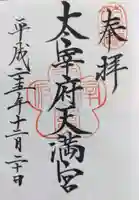 奉拝
太宰府天満宮
平成二十五年十二月二十日